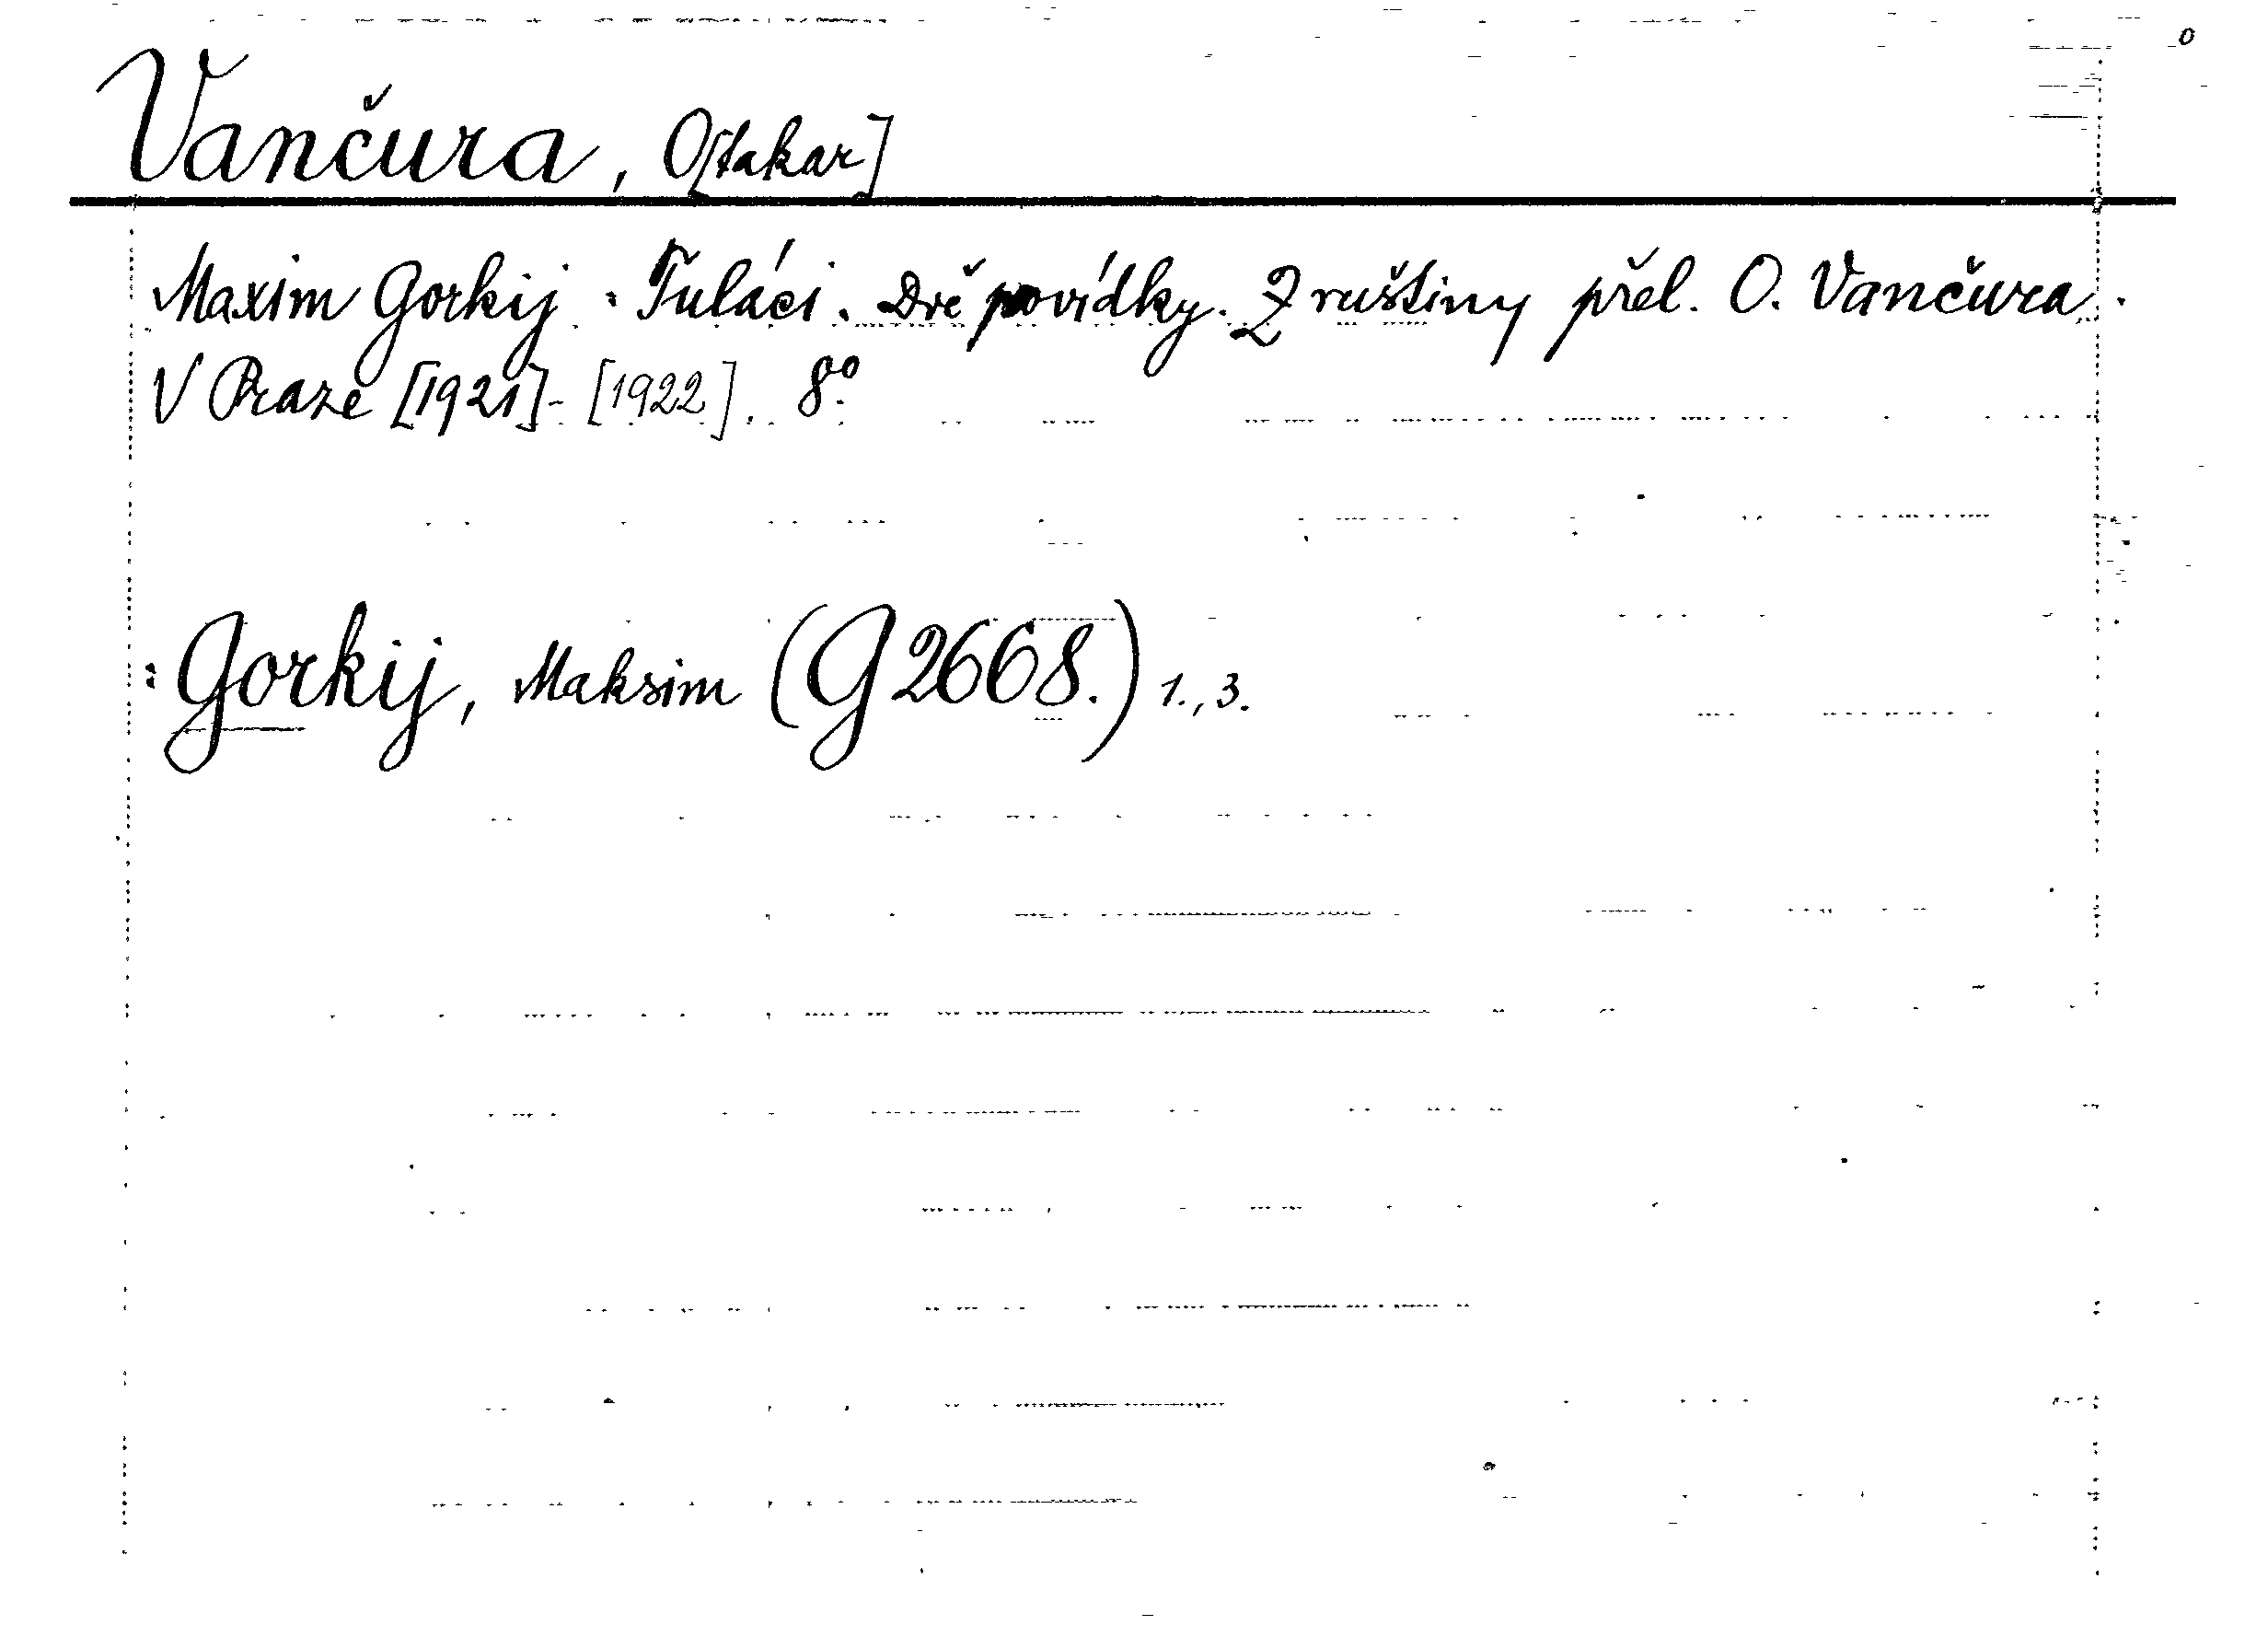 Vančura, O[takar]
Maxim Gorkij: Tuláci. Dvě povídky. Z ruštiny přel. O. Vančura.
V Praze [1921]-[1922]. 8°.
: Gorkij, Maksim (G2668.) 1., 3.